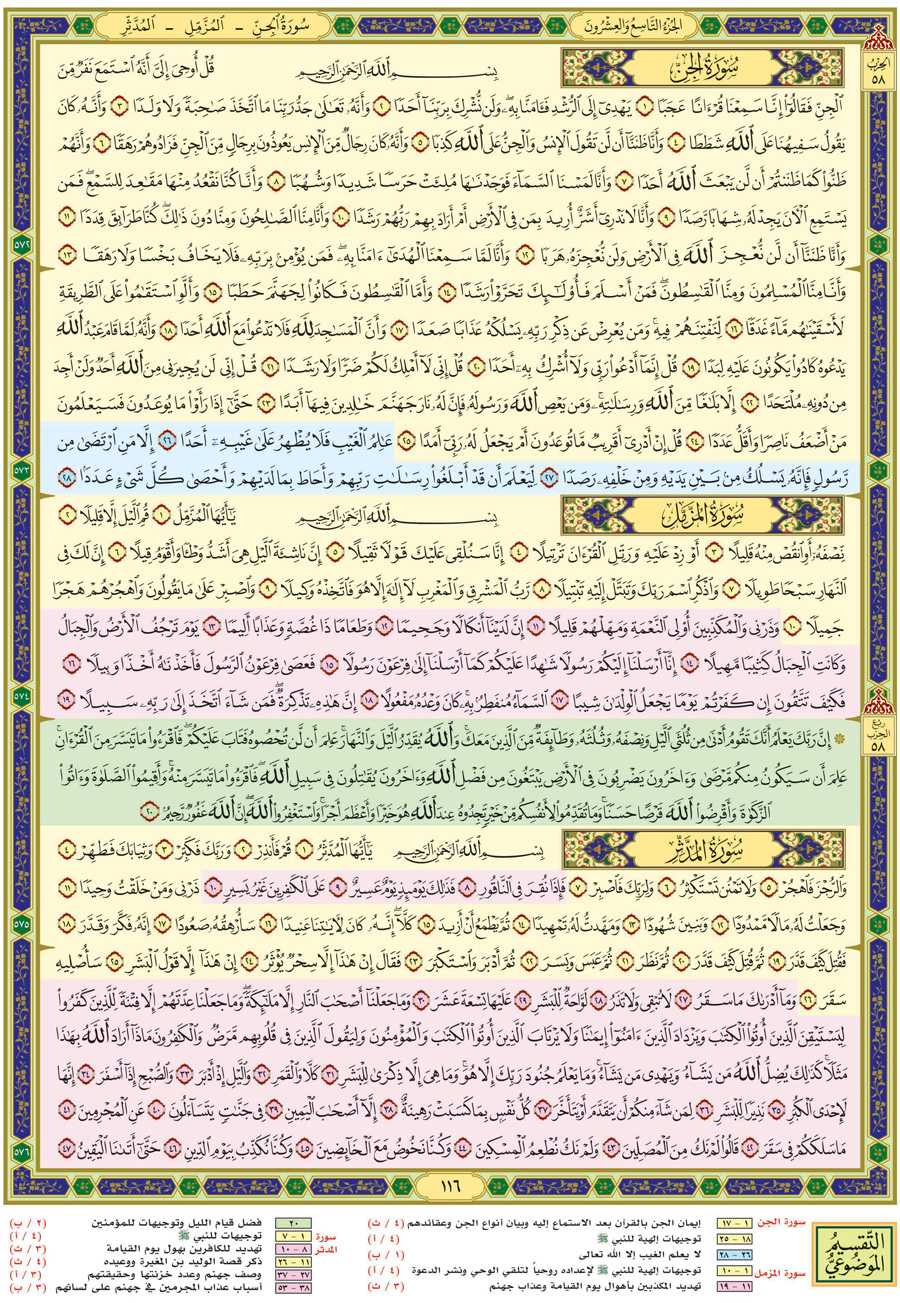 الجُزْءُ التَّاسِعُ وَالعِشْرُونَ
سُورَةُ الجِنِّ - المُزَّمِّل - المُدَّثِّر
الحِزْبُ ٥٨
سُورَةُ الجِنِّ
بِسْمِ ٱللَّهِ ٱلرَّحْمَٰنِ ٱلرَّحِيمِ قُلْ أُوحِيَ إِلَيَّ أَنَّهُ ٱسْتَمَعَ نَفَرٌ مِّنَ
ٱلْجِنِّ فَقَالُوٓا۟ إِنَّا سَمِعْنَا قُرْءَانًا عَجَبًا ١ يَهْدِىٓ إِلَى ٱلرُّشْدِ فَـَٔامَنَّا بِهِۦ ۖ وَلَن نُّشْرِكَ بِرَبِّنَآ أَحَدًا ٢ وَأَنَّهُۥ تَعَٰلَىٰ جَدُّ رَبِّنَا مَا ٱتَّخَذَ صَٰحِبَةً وَلَا وَلَدًا ٣ وَأَنَّهُۥ كَانَ
يَقُولُ سَفِيهُنَا عَلَى ٱللَّهِ شَطَطًا ٤ وَأَنَّا ظَنَنَّآ أَن لَّن تَقُولَ ٱلْإِنسُ وَٱلْجِنُّ عَلَى ٱللَّهِ كَذِبًا ٥ وَأَنَّهُۥ كَانَ رِجَالٌ مِّنَ ٱلْإِنسِ يَعُوذُونَ بِرِجَالٍ مِّنَ ٱلْجِنِّ فَزَادُوهُمْ رَهَقًا ٦ وَأَنَّهُمْ
ظَنُّوا۟ كَمَا ظَنَنتُمْ أَن لَّن يَبْعَثَ ٱللَّهُ أَحَدًا ٧ وَأَنَّا لَمَسْنَا ٱلسَّمَآءَ فَوَجَدْنَٰهَا مُلِئَتْ حَرَسًا شَدِيدًا وَشُهُبًا ٨ وَأَنَّا كُنَّا نَقْعُدُ مِنْهَا مَقَٰعِدَ لِلسَّمْعِ ۖ فَمَن
يَسْتَمِعِ ٱلْـَٔانَ يَجِدْ لَهُۥ شِهَابًا رَّصَدًا ٩ وَأَنَّا لَا نَدْرِىٓ أَشَرٌّ أُرِيدَ بِمَن فِى ٱلْأَرْضِ أَمْ أَرَادَ بِهِمْ رَبُّهُمْ رَشَدًا ١٠ وَأَنَّا مِنَّا ٱلصَّٰلِحُونَ وَمِنَّا دُونَ ذَٰلِكَ ۖ كُنَّا طَرَآئِقَ قِدَدًا ١١
وَأَنَّا ظَنَنَّآ أَن لَّن نُّعْجِزَ ٱللَّهَ فِى ٱلْأَرْضِ وَلَن نُّعْجِزَهُۥ هَرَبًا ١٢ وَأَنَّا لَمَّا سَمِعْنَا ٱلْهُدَىٰٓ ءَامَنَّا بِهِۦ ۖ فَمَن يُؤْمِنۢ بِرَبِّهِۦ فَلَا يَخَافُ بَخْسًا وَلَا رَهَقًا ١٣
وَأَنَّا مِنَّا ٱلْمُسْلِمُونَ وَمِنَّا ٱلْقَٰسِطُونَ ۖ فَمَنْ أَسْلَمَ فَأُو۟لَٰٓئِكَ تَحَرَّوْا۟ رَشَدًا ١٤ وَأَمَّا ٱلْقَٰسِطُونَ فَكَانُوا۟ لِجَهَنَّمَ حَطَبًا ١٥ وَأَلَّوِ ٱسْتَقَٰمُوا۟ عَلَى ٱلطَّرِيقَةِ
لَأَسْقَيْنَٰهُم مَّآءً غَدَقًا ١٦ لِّنَفْتِنَهُمْ فِيهِ ۚ وَمَن يُعْرِضْ عَن ذِكْرِ رَبِّهِۦ يَسْلُكْهُ عَذَابًا صَعَدًا ١٧ وَأَنَّ ٱلْمَسَٰجِدَ لِلَّهِ فَلَا تَدْعُوا۟ مَعَ ٱللَّهِ أَحَدًا ١٨ وَأَنَّهُۥ لَمَّا قَامَ عَبْدُ ٱللَّهِ
يَدْعُوهُ كَادُوا۟ يَكُونُونَ عَلَيْهِ لِبَدًا ١٩ قُلْ إِنَّمَآ أَدْعُوا۟ رَبِّى وَلَآ أُشْرِكُ بِهِۦٓ أَحَدًا ٢٠ قُلْ إِنِّى لَآ أَمْلِكُ لَكُمْ ضَرًّا وَلَا رَشَدًا ٢١ قُلْ إِنِّى لَن يُجِيرَنِى مِنَ ٱللَّهِ أَحَدٌ وَلَنْ أَجِدَ
مِن دُونِهِۦ مُلْتَحَدًا ٢٢ إِلَّا بَلَٰغًا مِّنَ ٱللَّهِ وَرِسَٰلَٰتِهِۦ ۚ وَمَن يَعْصِ ٱللَّهَ وَرَسُولَهُۥ فَإِنَّ لَهُۥ نَارَ جَهَنَّمَ خَٰلِدِينَ فِيهَآ أَبَدًا ٢٣ حَتَّىٰٓ إِذَا رَأَوْا۟ مَا يُوعَدُونَ فَسَيَعْلَمُونَ
مَنْ أَضْعَفُ نَاصِرًا وَأَقَلُّ عَدَدًا ٢٤ قُلْ إِنْ أَدْرِىٓ أَقَرِيبٌ مَّا تُوعَدُونَ أَمْ يَجْعَلُ لَهُۥ رَبِّىٓ أَمَدًا ٢٥ عَٰلِمُ ٱلْغَيْبِ فَلَا يُظْهِرُ عَلَىٰ غَيْبِهِۦٓ أَحَدًا ٢٦ إِلَّا مَنِ ٱرْتَضَىٰ مِن
رَّسُولٍ فَإِنَّهُۥ يَسْلُكُ مِنۢ بَيْنِ يَدَيْهِ وَمِنْ خَلْفِهِۦ رَصَدًا ٢٧ لِّيَعْلَمَ أَن قَدْ أَبْلَغُوا۟ رِسَٰلَٰتِ رَبِّهِمْ وَأَحَاطَ بِمَا لَدَيْهِمْ وَأَحْصَىٰ كُلَّ شَىْءٍ عَدَدًۢا ٢٨
سُورَةُ المُزَّمِّلِ
بِسْمِ ٱللَّهِ ٱلرَّحْمَٰنِ ٱلرَّحِيمِ يَٰٓأَيُّهَا ٱلْمُزَّمِّلُ ١ قُمِ ٱلَّيْلَ إِلَّا قَلِيلًا ٢
نِّصْفَهُۥٓ أَوِ ٱنقُصْ مِنْهُ قَلِيلًا ٣ أَوْ زِدْ عَلَيْهِ وَرَتِّلِ ٱلْقُرْءَانَ تَرْتِيلًا ٤ إِنَّا سَنُلْقِى عَلَيْكَ قَوْلًا ثَقِيلًا ٥ إِنَّ نَاشِئَةَ ٱلَّيْلِ هِىَ أَشَدُّ وَطْـًٔا وَأَقْوَمُ قِيلًا ٦ إِنَّ لَكَ فِى
ٱلنَّهَارِ سَبْحًا طَوِيلًا ٧ وَٱذْكُرِ ٱسْمَ رَبِّكَ وَتَبَتَّلْ إِلَيْهِ تَبْتِيلًا ٨ رَّبُّ ٱلْمَشْرِقِ وَٱلْمَغْرِبِ لَآ إِلَٰهَ إِلَّا هُوَ فَٱتَّخِذْهُ وَكِيلًا ٩ وَٱصْبِرْ عَلَىٰ مَا يَقُولُونَ وَٱهْجُرْهُمْ هَجْرًا
جَمِيلًا ١٠ وَذَرْنِى وَٱلْمُكَذِّبِينَ أُو۟لِى ٱلنَّعْمَةِ وَمَهِّلْهُمْ قَلِيلًا ١١ إِنَّ لَدَيْنَآ أَنكَالًا وَجَحِيمًا ١٢ وَطَعَامًا ذَا غُصَّةٍ وَعَذَابًا أَلِيمًا ١٣ يَوْمَ تَرْجُفُ ٱلْأَرْضُ وَٱلْجِبَالُ
وَكَانَتِ ٱلْجِبَالُ كَثِيبًا مَّهِيلًا ١٤ إِنَّآ أَرْسَلْنَآ إِلَيْكُمْ رَسُولًا شَٰهِدًا عَلَيْكُمْ كَمَآ أَرْسَلْنَآ إِلَىٰ فِرْعَوْنَ رَسُولًا ١٥ فَعَصَىٰ فِرْعَوْنُ ٱلرَّسُولَ فَأَخَذْنَٰهُ أَخْذًا وَبِيلًا ١٦
فَكَيْفَ تَتَّقُونَ إِن كَفَرْتُمْ يَوْمًا يَجْعَلُ ٱلْوِلْدَٰنَ شِيبًا ١٧ ٱلسَّمَآءُ مُنفَطِرٌۢ بِهِۦ ۚ كَانَ وَعْدُهُۥ مَفْعُولًا ١٨ إِنَّ هَٰذِهِۦ تَذْكِرَةٌ ۖ فَمَن شَآءَ ٱتَّخَذَ إِلَىٰ رَبِّهِۦ سَبِيلًا ١٩
رُبْعُ الحِزْبِ ٥٨
۞ إِنَّ رَبَّكَ يَعْلَمُ أَنَّكَ تَقُومُ أَدْنَىٰ مِن ثُلُثَىِ ٱلَّيْلِ وَنِصْفَهُۥ وَثُلُثَهُۥ وَطَآئِفَةٌ مِّنَ ٱلَّذِينَ مَعَكَ ۚ وَٱللَّهُ يُقَدِّرُ ٱلَّيْلَ وَٱلنَّهَارَ ۚ عَلِمَ أَن لَّن تُحْصُوهُ فَتَابَ عَلَيْكُمْ ۖ فَٱقْرَءُوا۟ مَا تَيَسَّرَ مِنَ ٱلْقُرْءَانِ ۚ
عَلِمَ أَن سَيَكُونُ مِنكُم مَّرْضَىٰ ۙ وَءَاخَرُونَ يَضْرِبُونَ فِى ٱلْأَرْضِ يَبْتَغُونَ مِن فَضْلِ ٱللَّهِ ۙ وَءَاخَرُونَ يُقَٰتِلُونَ فِى سَبِيلِ ٱللَّهِ ۖ فَٱقْرَءُوا۟ مَا تَيَسَّرَ مِنْهُ ۚ وَأَقِيمُوا۟ ٱلصَّلَوٰةَ وَءَاتُوا۟
ٱلزَّكَوٰةَ وَأَقْرِضُوا۟ ٱللَّهَ قَرْضًا حَسَنًا ۚ وَمَا تُقَدِّمُوا۟ لِأَنفُسِكُم مِّنْ خَيْرٍ تَجِدُوهُ عِندَ ٱللَّهِ هُوَ خَيْرًا وَأَعْظَمَ أَجْرًا ۚ وَٱسْتَغْفِرُوا۟ ٱللَّهَ ۖ إِنَّ ٱللَّهَ غَفُورٌ رَّحِيمٌۢ ٢٠
سُورَةُ المُدَّثِّرِ
بِسْمِ ٱللَّهِ ٱلرَّحْمَٰنِ ٱلرَّحِيمِ يَٰٓأَيُّهَا ٱلْمُدَّثِّرُ ١ قُمْ فَأَنذِرْ ٢ وَرَبَّكَ فَكَبِّرْ ٣ وَثِيَابَكَ فَطَهِّرْ ٤
وَٱلرُّجْزَ فَٱهْجُرْ ٥ وَلَا تَمْنُن تَسْتَكْثِرُ ٦ وَلِرَبِّكَ فَٱصْبِرْ ٧ فَإِذَا نُقِرَ فِى ٱلنَّاقُورِ ٨ فَذَٰلِكَ يَوْمَئِذٍ يَوْمٌ عَسِيرٌ ٩ عَلَى ٱلْكَٰفِرِينَ غَيْرُ يَسِيرٍ ١٠ ذَرْنِى وَمَنْ خَلَقْتُ وَحِيدًا ١١
وَجَعَلْتُ لَهُۥ مَالًا مَّمْدُودًا ١٢ وَبَنِينَ شُهُودًا ١٣ وَمَهَّدتُّ لَهُۥ تَمْهِيدًا ١٤ ثُمَّ يَطْمَعُ أَنْ أَزِيدَ ١٥ كَلَّآ ۖ إِنَّهُۥ كَانَ لِـَٔايَٰتِنَا عَنِيدًا ١٦ سَأُرْهِقُهُۥ صَعُودًا ١٧ إِنَّهُۥ فَكَّرَ وَقَدَّرَ ١٨
فَقُتِلَ كَيْفَ قَدَّرَ ١٩ ثُمَّ قُتِلَ كَيْفَ قَدَّرَ ٢٠ ثُمَّ نَظَرَ ٢١ ثُمَّ عَبَسَ وَبَسَرَ ٢٢ ثُمَّ أَدْبَرَ وَٱسْتَكْبَرَ ٢٣ فَقَالَ إِنْ هَٰذَآ إِلَّا سِحْرٌ يُؤْثَرُ ٢٤ إِنْ هَٰذَآ إِلَّا قَوْلُ ٱلْبَشَرِ ٢٥ سَأُصْلِيهِ
سَقَرَ ٢٦ وَمَآ أَدْرَىٰكَ مَا سَقَرُ ٢٧ لَا تُبْقِى وَلَا تَذَرُ ٢٨ لَوَّاحَةٌ لِّلْبَشَرِ ٢٩ عَلَيْهَا تِسْعَةَ عَشَرَ ٣٠ وَمَا جَعَلْنَآ أَصْحَٰبَ ٱلنَّارِ إِلَّا مَلَٰٓئِكَةً ۙ وَمَا جَعَلْنَا عِدَّتَهُمْ إِلَّا فِتْنَةً لِّلَّذِينَ كَفَرُوا۟
لِيَسْتَيْقِنَ ٱلَّذِينَ أُوتُوا۟ ٱلْكِتَٰبَ وَيَزْدَادَ ٱلَّذِينَ ءَامَنُوٓا۟ إِيمَٰنًا ۙ وَلَا يَرْتَابَ ٱلَّذِينَ أُوتُوا۟ ٱلْكِتَٰبَ وَٱلْمُؤْمِنُونَ ۙ وَلِيَقُولَ ٱلَّذِينَ فِى قُلُوبِهِم مَّرَضٌ وَٱلْكَٰفِرُونَ مَاذَآ أَرَادَ ٱللَّهُ بِهَٰذَا
مَثَلًا ۚ كَذَٰلِكَ يُضِلُّ ٱللَّهُ مَن يَشَآءُ وَيَهْدِى مَن يَشَآءُ ۚ وَمَا يَعْلَمُ جُنُودَ رَبِّكَ إِلَّا هُوَ ۚ وَمَا هِىَ إِلَّا ذِكْرَىٰ لِلْبَشَرِ ٣١ كَلَّا وَٱلْقَمَرِ ٣٢ وَٱلَّيْلِ إِذْ أَدْبَرَ ٣٣ وَٱلصُّبْحِ إِذَآ أَسْفَرَ ٣٤ إِنَّهَا
لَإِحْدَى ٱلْكُبَرِ ٣٥ نَذِيرًا لِّلْبَشَرِ ٣٦ لِمَن شَآءَ مِنكُمْ أَن يَتَقَدَّمَ أَوْ يَتَأَخَّرَ ٣٧ كُلُّ نَفْسٍۭ بِمَا كَسَبَتْ رَهِينَةٌ ٣٨ إِلَّآ أَصْحَٰبَ ٱلْيَمِينِ ٣٩ فِى جَنَّٰتٍ يَتَسَآءَلُونَ ٤٠ عَنِ ٱلْمُجْرِمِينَ ٤١
مَا سَلَكَكُمْ فِى سَقَرَ ٤٢ قَالُوا۟ لَمْ نَكُ مِنَ ٱلْمُصَلِّينَ ٤٣ وَلَمْ نَكُ نُطْعِمُ ٱلْمِسْكِينَ ٤٤ وَكُنَّا نَخُوضُ مَعَ ٱلْخَآئِضِينَ ٤٥ وَكُنَّا نُكَذِّبُ بِيَوْمِ ٱلدِّينِ ٤٦ حَتَّىٰٓ أَتَىٰنَا ٱلْيَقِينُ ٤٧
٥٧٢
٥٧٣
٥٧٤
٥٧٥
٥٧٦
١١٦
التَّقسِيمُ المَوضُوعِيُّ
سورة الجن ١ - ١٧ إيمان الجن بالقرآن بعد الاستماع إليه وبيان أنواع الجن وعقائدهم (٤ / ث)
١٨ - ٢٥ توجيهات إلهية للنبي ﷺ (٤ / أ)
٢٦ - ٢٨ لا يعلم الغيب إلا الله تعالى (١ / ب)
سورة المزمل ١ - ١٠ توجيهات إلهية للنبي ﷺ لإعداده روحياً لتلقي الوحي ونشر الدعوة (٤ / أ)
١١ - ١٩ تهديد المكذبين بأهوال يوم القيامة وعذاب جهنم (٣ / ث)
٢٠ فضل قيام الليل وتوجيهات للمؤمنين (٢ / ب)
سورة المدثر ١ - ٧ توجيهات للنبي ﷺ (٤ / أ)
٨ - ١٠ تهديد للكافرين بهول يوم القيامة (٣ / ث)
١١ - ٢٦ ذكر قصة الوليد بن المغيرة ووعيده (٤ / ث)
٢٧ - ٣٧ وصف جهنم وعدد خزنتها وحقيقتهم (٣ / أ)
٣٨ - ٥٣ أسباب عذاب المجرمين في جهنم على لسانهم (٣ / ب)